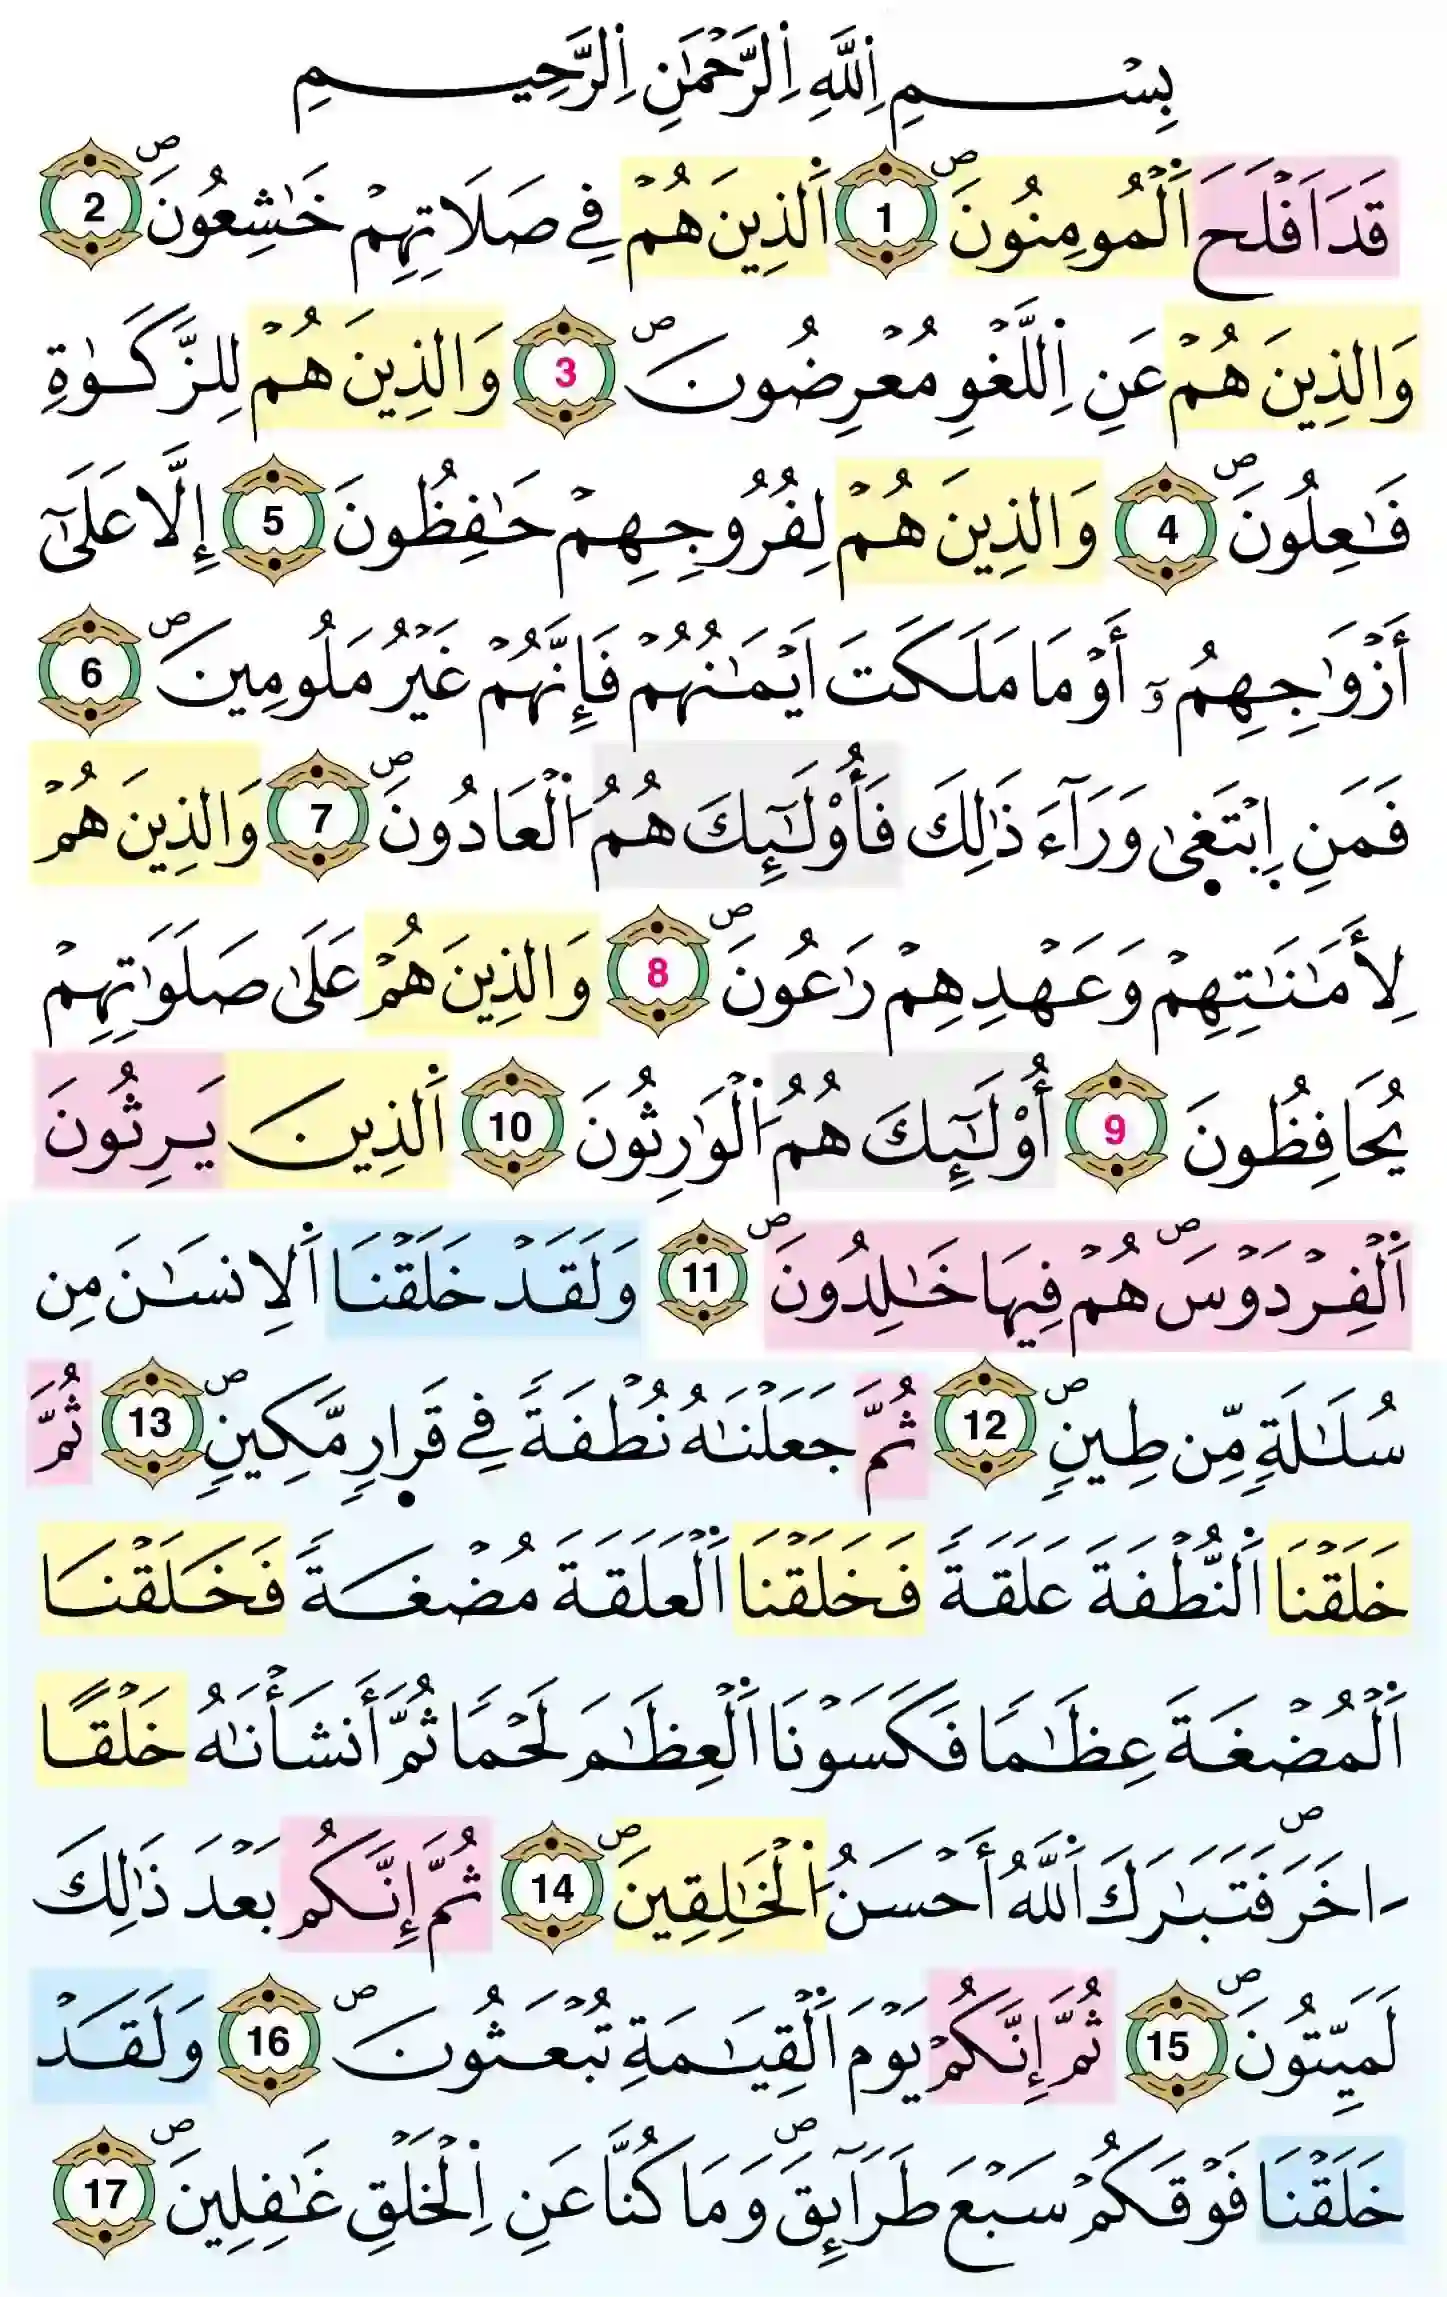 بِسْمِ اِ۬للَّهِ اِ۬لرَّحْمَٰنِ اِ۬لرَّحِيمِ
قَدَ اَفْلَحَ اَ۬لْمُومِنُونَ ص 1 اَ۬لذِينَ هُمْ فِے صَلَاتِهِمْ خَٰشِعُونَ ص 2
وَالذِينَ هُمْ عَنِ اِ۬للَّغْوِ مُعْرِضُونَ ص 3 وَالذِينَ هُمْ لِلزَّكَوٰةِ
فَٰعِلُونَ ص 4 وَالذِينَ هُمْ لِفُرُوجِهِمْ حَٰفِظُونَ 5 إِلَّا عَلَىٰٓ
أَزْوَٰجِهِمُۥٓ أَوْ مَا مَلَكَتَ اَيْمَٰنُهُمْ فَإِنَّهُمْ غَيْرُ مَلُومِينَ ص 6
فَمَنِ اِ۪بْتَغ۪ىٰ وَرَآءَ ذَٰلِكَ فَأُوْلَٰٓئِكَ هُمُ اُ۬لْعَادُونَ ص 7 وَالذِينَ هُمْ
لِأَمَٰنَٰتِهِمْ وَعَهْدِهِمْ رَٰعُونَ ص 8 وَالذِينَ هُمْ عَلَىٰ صَلَوَٰتِهِمْ
يُحَافِظُونَ 9 أُوْلَٰٓئِكَ هُمُ اُ۬لْوَٰرِثُونَ 10 اَ۬لذِينَ يَرِثُونَ
اَ۬لْفِرْدَوْسَ ص هُمْ فِيهَا خَٰلِدُونَ ص 11 وَلَقَدْ خَلَقْنَا اَ۬لِانسَٰنَ مِن
سُلَٰلَةٍ مِّن طِينٍ ص 12 ثُمَّ جَعَلْنَٰهُ نُطْفَةً فِے قَر۪ارٍ مَّكِينٍ ص 13 ثُمَّ
خَلَقْنَا اَ۬لنُّطْفَةَ عَلَقَةً فَخَلَقْنَا اَ۬لْعَلَقَةَ مُضْغَةً فَخَلَقْنَا
اَ۬لْمُضْغَةَ عِظَٰمًا فَكَسَوْنَا اَ۬لْعِظَٰمَ لَحْمًا ثُمَّ أَنشَأْنَٰهُ خَلْقًا
ـاخَرَ ص فَتَبَٰرَكَ اَ۬للَّهُ أَحْسَنُ اُ۬لْخَٰلِقِينَ ص 14 ثُمَّ إِنَّكُم بَعْدَ ذَٰلِكَ
لَمَيِّتُونَ ص 15 ثُمَّ إِنَّكُمْ يَوْمَ اَ۬لْقِيَٰمَةِ تُبْعَثُونَ ص 16 وَلَقَدْ
خَلَقْنَا فَوْقَكُمْ سَبْعَ طَرَآئِقَ ص وَمَا كُنَّا عَنِ اِ۬لْخَلْقِ غَٰفِلِينَ ص 17